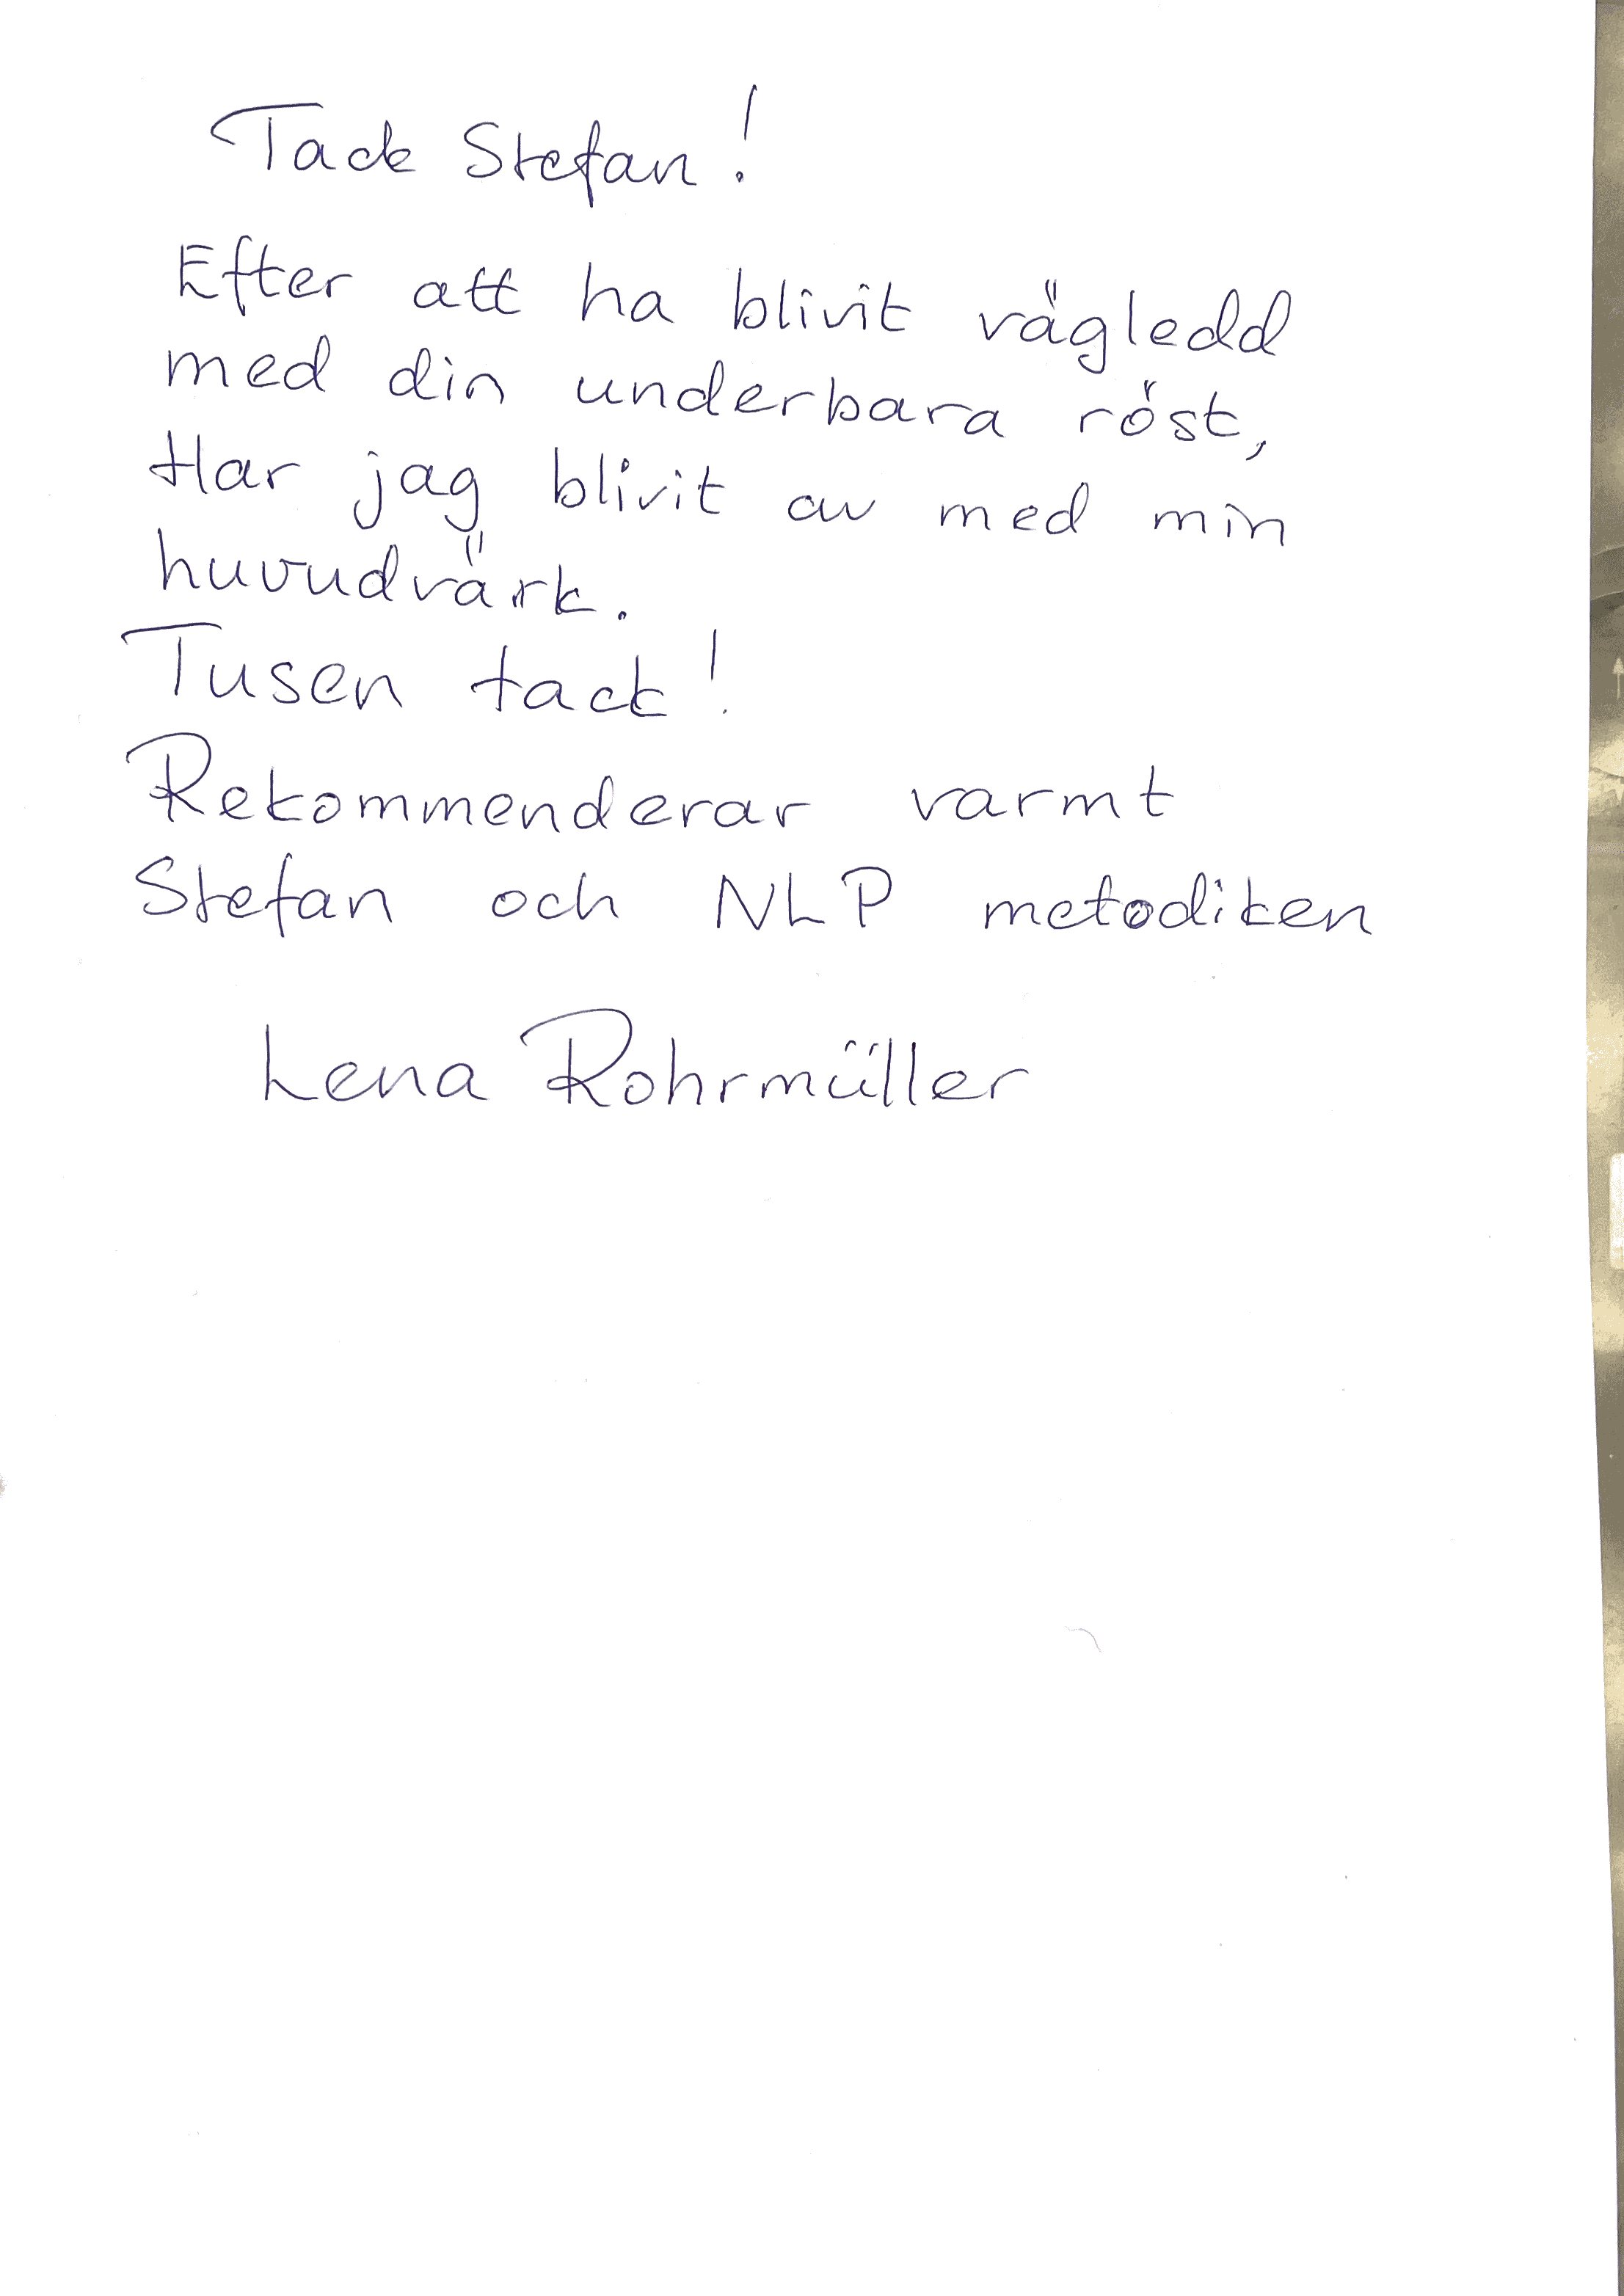 Tack Stefan!
Efter att ha blivit vägledd
med din underbara röst,
Har jag blivit av med min
huvudvärk.
Tusen tack!
Rekommenderar varmt
Stefan och NLP metodiken
Lena Rohrmüller